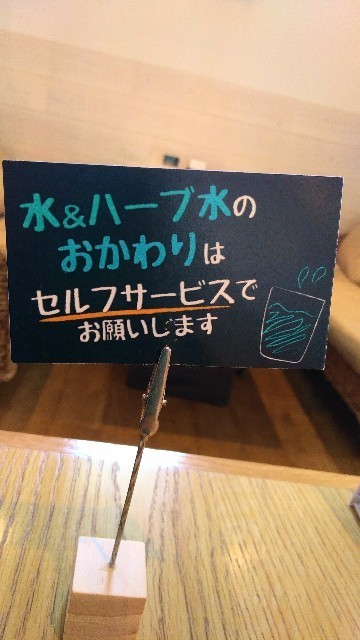 水&ハーブ水の
おかわりは
セルフサービスで
お願いします